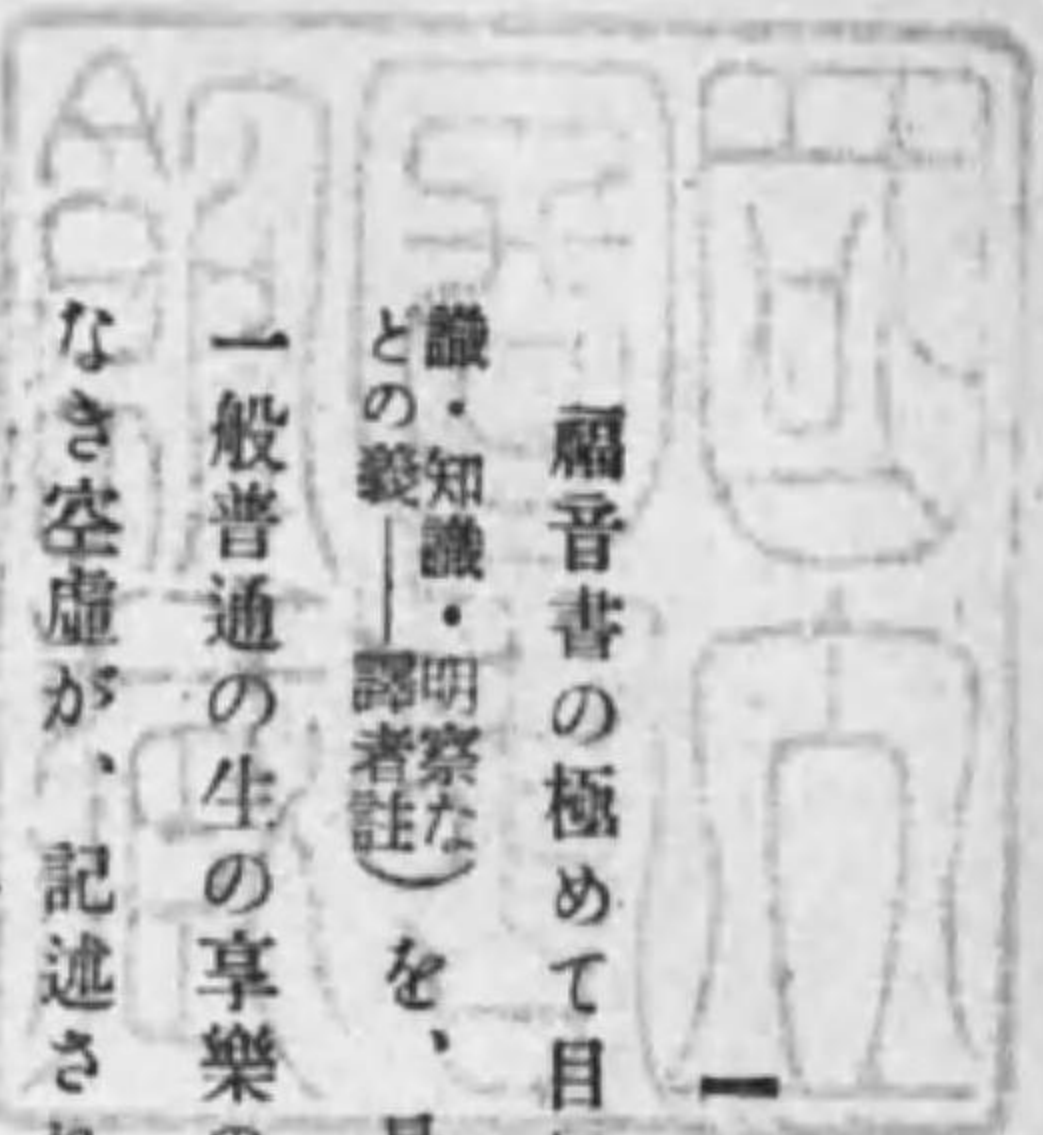 一
福音書の極めて目
識・知識・明察な
どの義——譯者註）を、
一般普通の生の享樂の
なき空虛が、記述さ